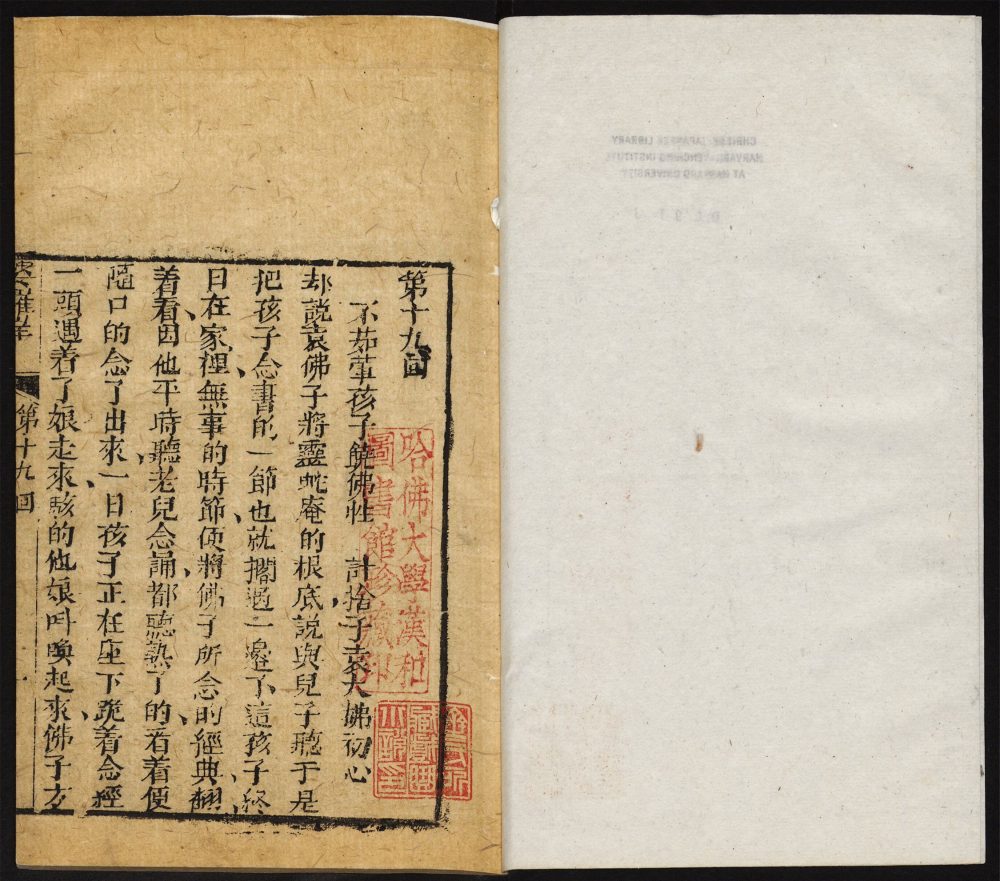 第十九回
不茹葷孩子饒佛性 計捨子袁大娣初心
却説袁佛子將靈蛇庵的根底説與兒子聽于是
把孩子念書的一節也就擱過一邉了這孩子終
日在家裡無事的時節便將佛子所念的經典翻
着看因他平時聽老兒念誦都聽熟了的若着便
隨口的念了出來一日孩子正在座下跪着念經
一頭遇着了娘走來駭的他娘叫喚起來佛子方
第十九回
哈佛大學漢和
圖書館珍藏印
CHINESE-JAPANESE LIBRARY
HARVARD-YENCHING INSTITUTE
AT HARVARD UNIVERSITY